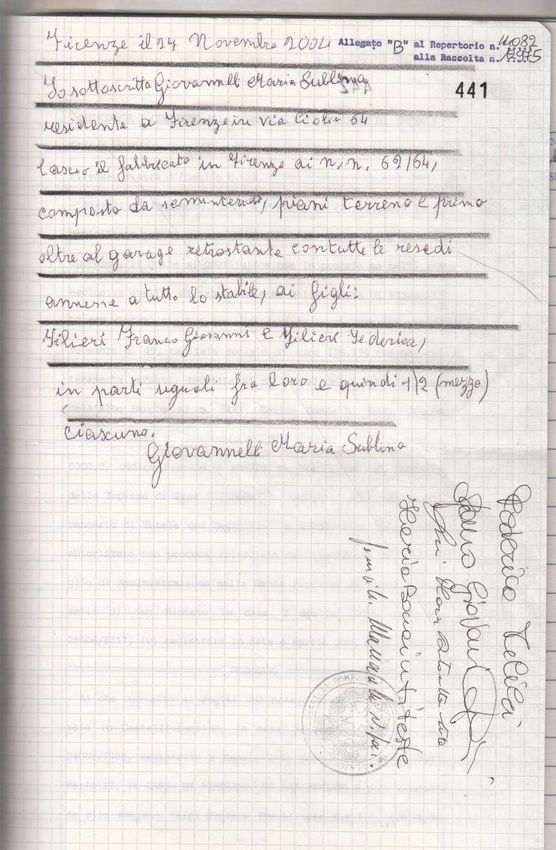 Firenze il 24 Novembre 2004
Allegato "B" al Repertorio n. 11082
alla Raccolta n.
441
Io sottoscritta Giovannelli Maria Sublima
residente a Firenze in via Cioli 64
lascio il fabbricato in Firenze ai n.n. 62/64,
composto da seminterrato, piani terreno e primo
oltre al garage retrostante con tutte le resedi
annesse a tutto lo stabile, ai figli:
Filieri Franco Giovanni e Filieri Federica,
in parti uguali fra loro e quindi 1/2 (mezzo)
ciascuno.
Giovannelli Maria Sublima
Federica Filieri
Franco Giovanni
Ilaria teste